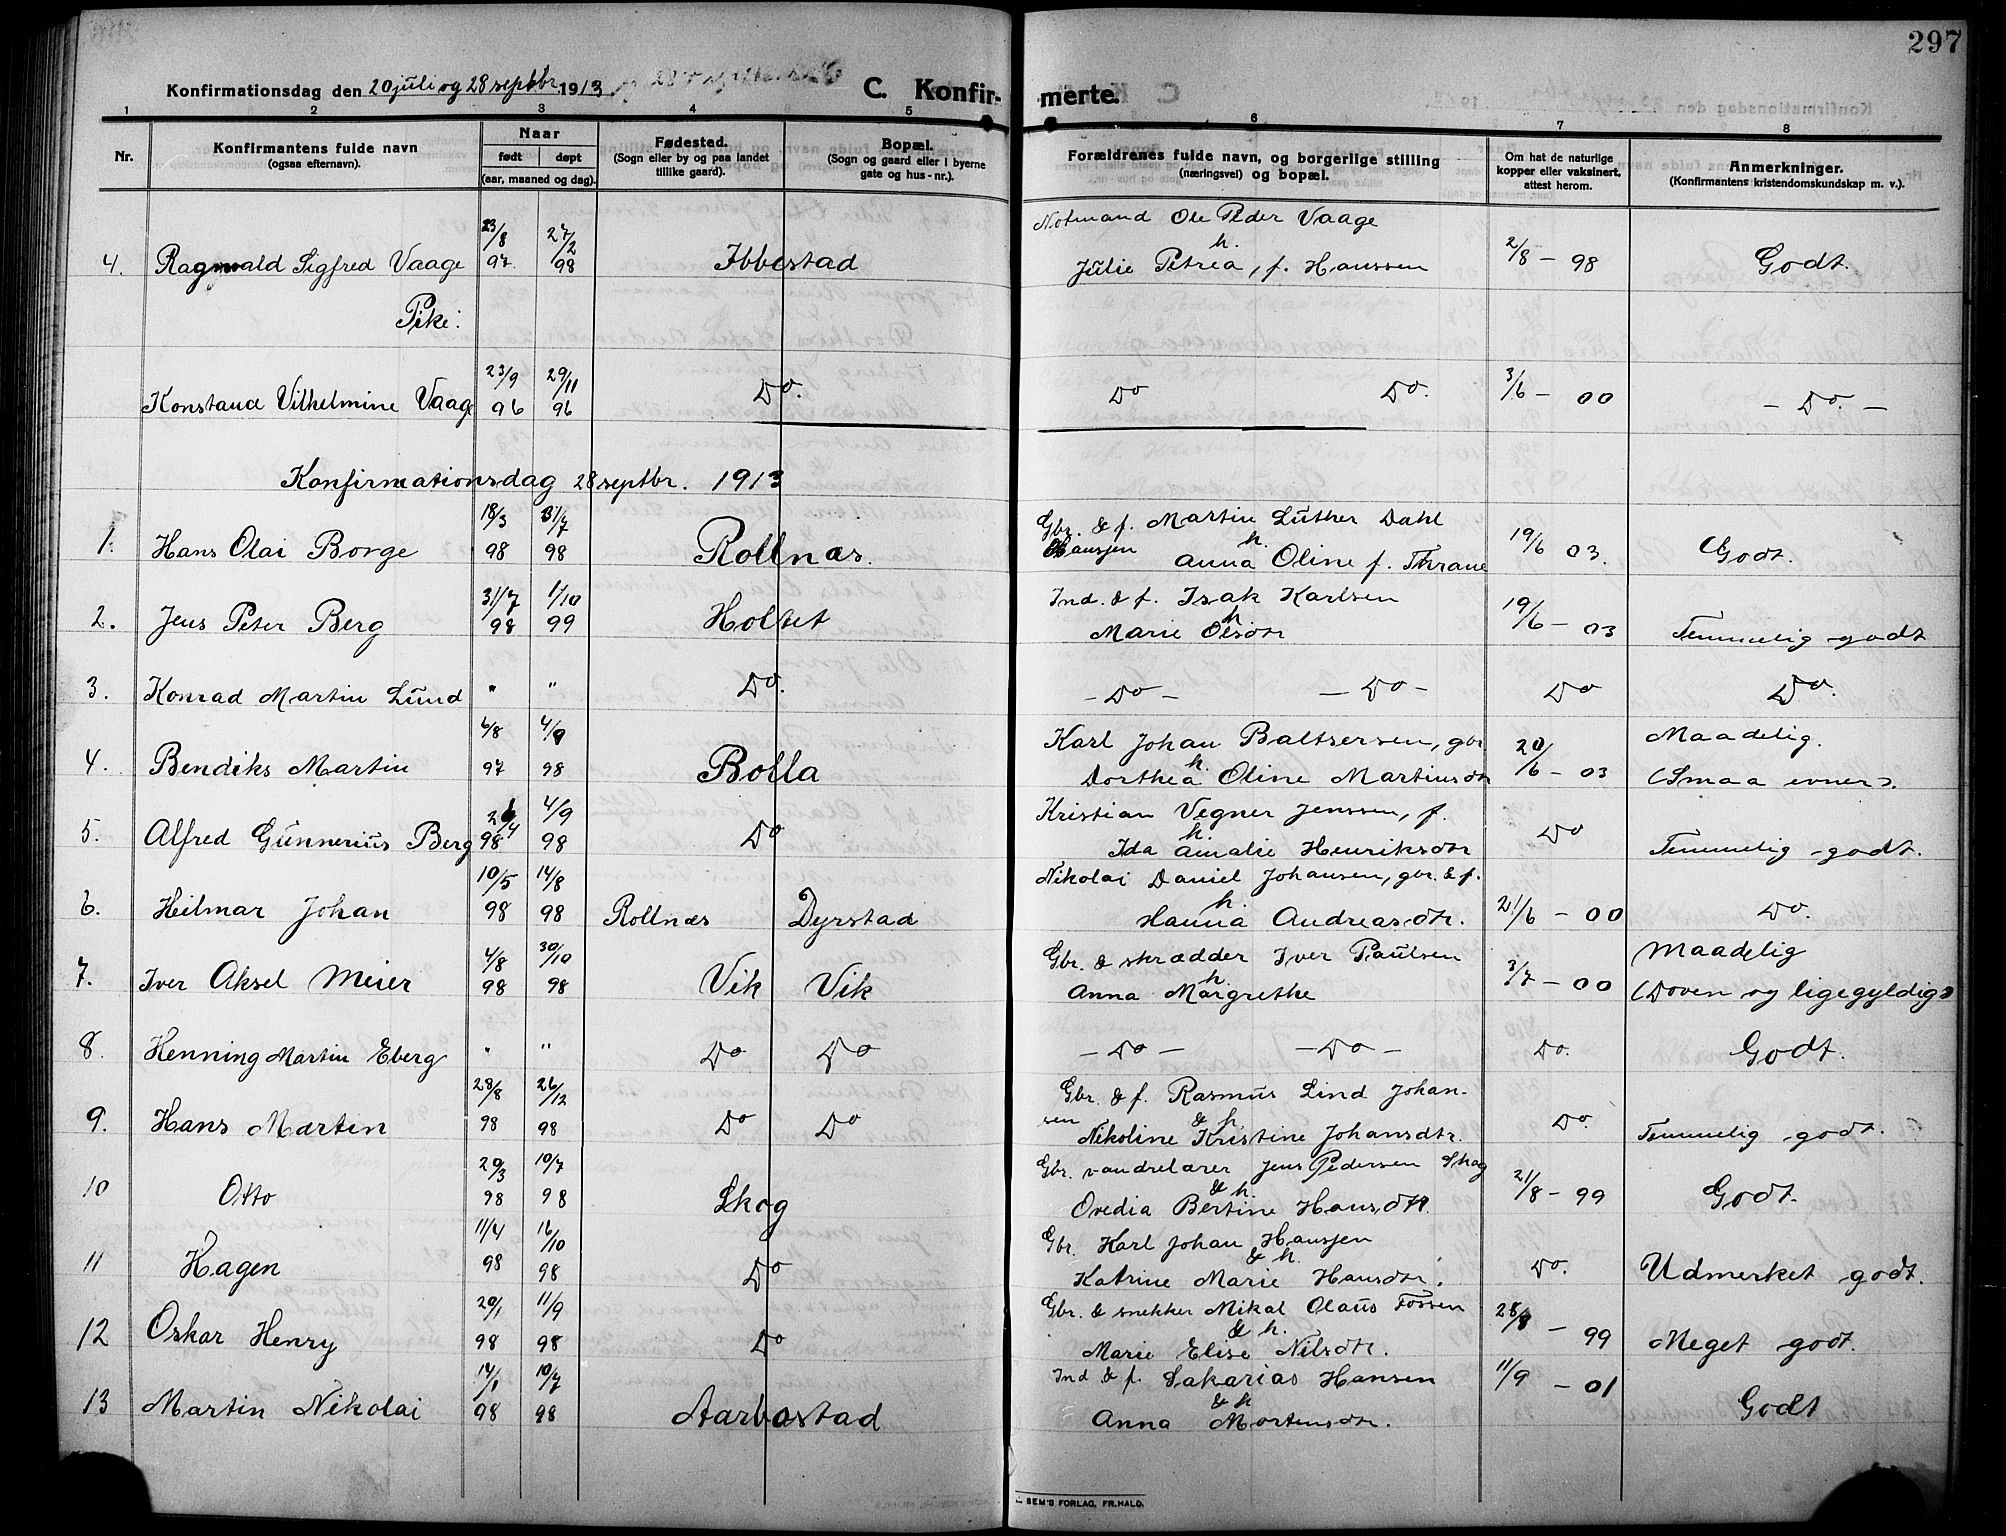 297
Konfirmationsdag den 20 juli og 28 septbr 1913
C. Konfir- merte.
1 2 3 4 5 6 7 8
Nr.
Konfirmantens fulde navn
(ogsaa efternavn).
Naar
født døpt
(aar, maaned og dag).
Fødested.
(Sogn eller by og paa landet
tillike gaard).
Bopæl.
(Sogn og gaard eller i byerne
gate og hus-nr.).
Forældrenes fulde navn, og borgerlige stilling
(næringsvei) og bopæl.
Om hat de naturlige
kopper eller vaksinert,
attest herom.
Anmerkninger.
(Konfirmantens kristendomskundskap m. v.).
23/8 27/2 Notmand Ole Peder Vaage
4. Ragnvald Sigfred Vaage 97 98 Ibbestad & h. Julie Petrea, f. Hanssen 2/8 - 98 Godt.
Pike:
23/9 29/11 3/6 - 00
Konstance Vilhelmine Vaage 96 96 Do. Do Do. - Do. -
Konfirmationsdag 28 septbr. 1913
18/3 31/7 Gbr. & f. Martin Luther Dahl
1. Hans Olai Borge 98 98 Rollnæs. Hansen h. Anna Oline f. Thrane 19/6 03. Godt.
31/7 1/10 Ind. & f. Isak Karlsen
2. Jens Peter Berg 98 99 Holtet h. Marie Olsdtr 19/6 - 03 Temmelig godt
3. Konrad Martin Lund " " Do. - Do - - Do - Do Do.
6/8 4/9 Karl Johan Baltsersen, gbr. 20/6 - 03 Maadelig.
4. Bendiks Martin 97 98 Bolla h. Dorthea Oline Martinsdtr (Smaa evner).
4/9 Kristian Vegner Jenssen, f.
5. Alfred Gunnerius Berg 98 98 Do h. Ida Amalie Henriksdtr Do Temmelig godt.
10/5 14/8 Nikolai Daniel Johansen, gbr. & f.
6. Hilmar Johan 98 98 Rollnæs Dyrstad h. Hanna Andreasdtr. 21/6 - 00 Do.
4/8 30/10 Gbr. & skrædder Iver Paulsen Maadelig
7. Iver Aksel Meier 98 98 Vik Vik h. Anna Margrethe 3/7 - 00 (Doven og ligegyldig)
8. Henning Martin Eberg " " Do Do - Do - - Do - Do. Godt.
28/8 26/12 Gbr. & f. Rasmus Lind Johan-
9. Hans Martin 98 98 Do Do sen & h. Nikoline Kristine Johansdtr. Do. Temmelig godt.
20/3 10/7 Gbr. vandrelærer Jens Pedersen Skog
10 Otto 98 98 Skog & h. Ovedia Bertine Hansdtr. 21/8 - 99 Godt.
11/4 16/10 Gbr. Karl Johan Hansen
11 Hagen 98 98 Do & h. Katrine Marie Hansdtr. Do. Udmerket godt.
20/1 11/9 Gbr. & snekker Mikal Olaus Fossen
12 Oskar Henry 98 98 Do & h. Marie Elise Nilsdtr. 28/8 - 99 Meget godt.
14/1 10/7 Ind & f. Sakarias Hansen
13 Martin Nikolai 98 98 Aarbostad & h Anna Mortensdtr. 11/9 - 01 Godt
SEM'S FORLAG, FR.HALD.